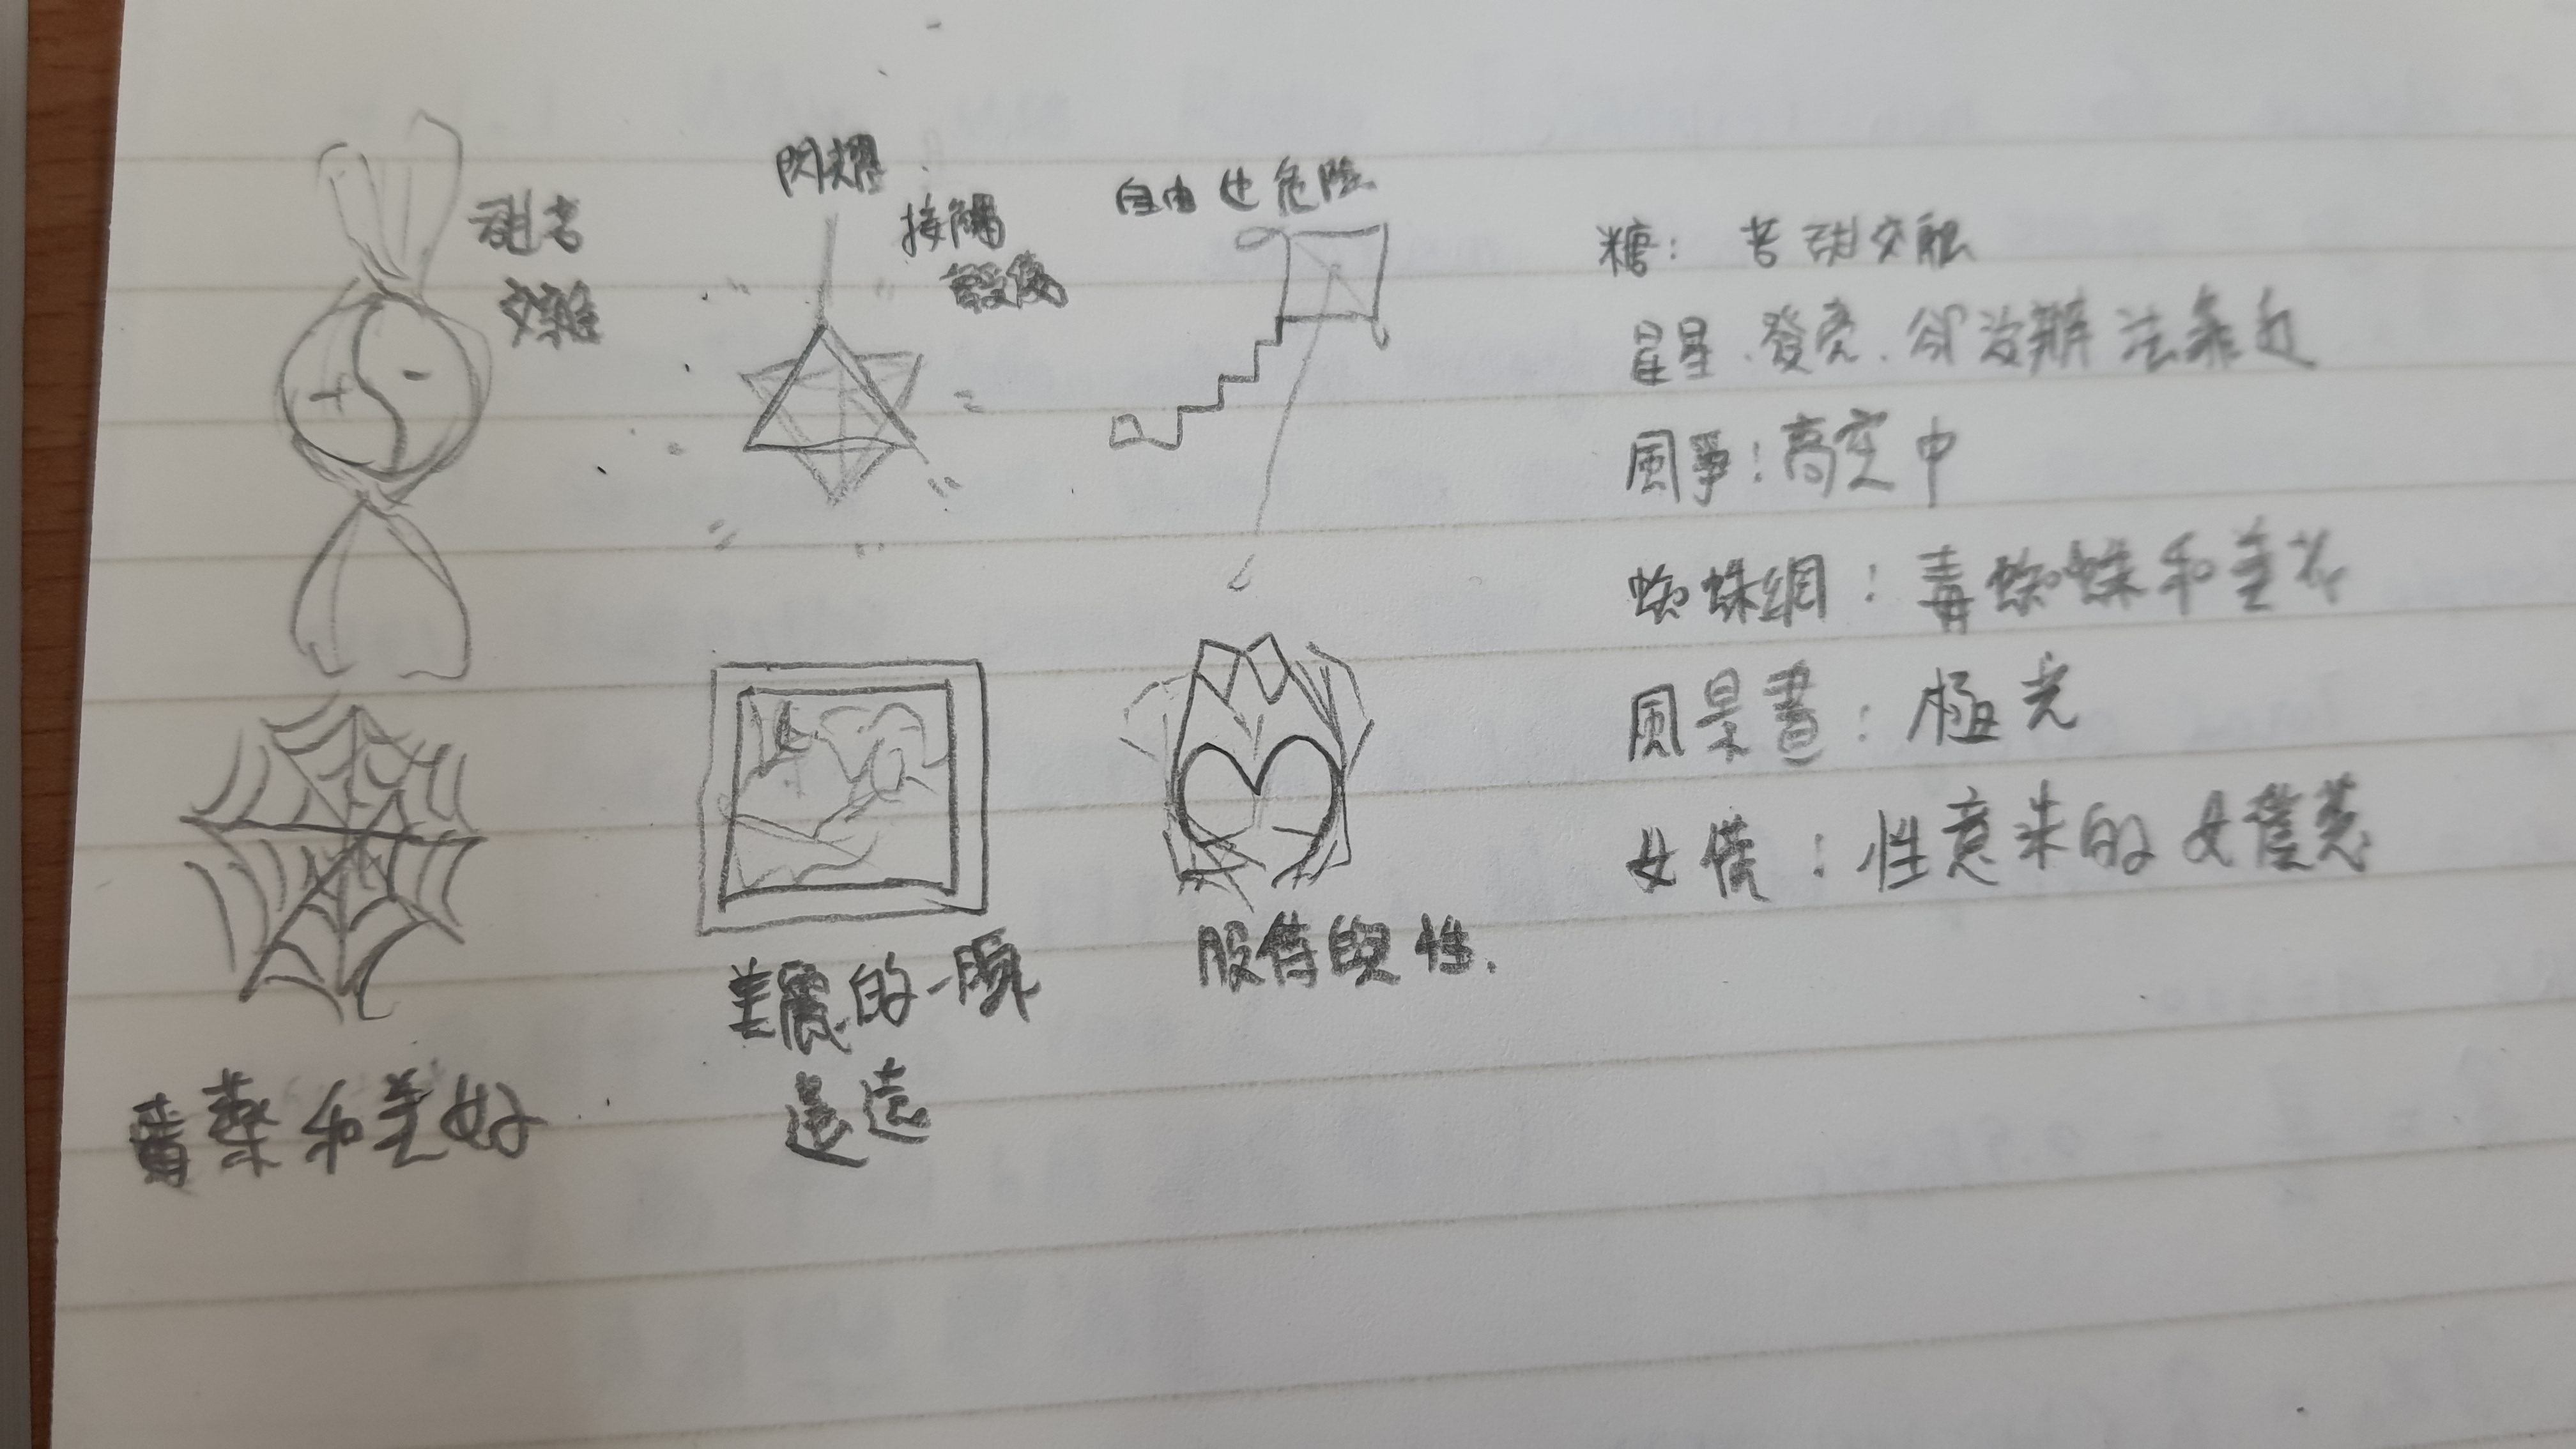 甜苦
交雜
閃耀
接觸
毀傷
自由也危險
糖：苦甜交融
星星、發亮、卻沒辦法靠近
風箏：高空中
蜘蛛網：毒蜘蛛和美
風景畫：極光
女僕：性意味的女僕
毒藥和美好
美麗的一瞬
遙遠
服侍與性.